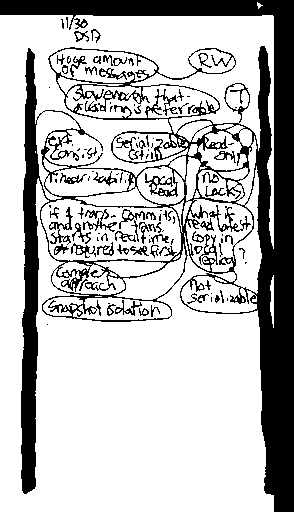 11/30
DS17
Huge amount
of messages
RW
Slow enough that
reading is preferrable
T
ext.
consist
Serializable
(still)
Read-
only
Linearizability
Local
Read
No
Locks
If 1 trans. commits,
and another trans
starts in real time,
required to see first
What if
read latest
copy in
local
replica?
Complex
approach
Not
serializable
Snapshot isolation